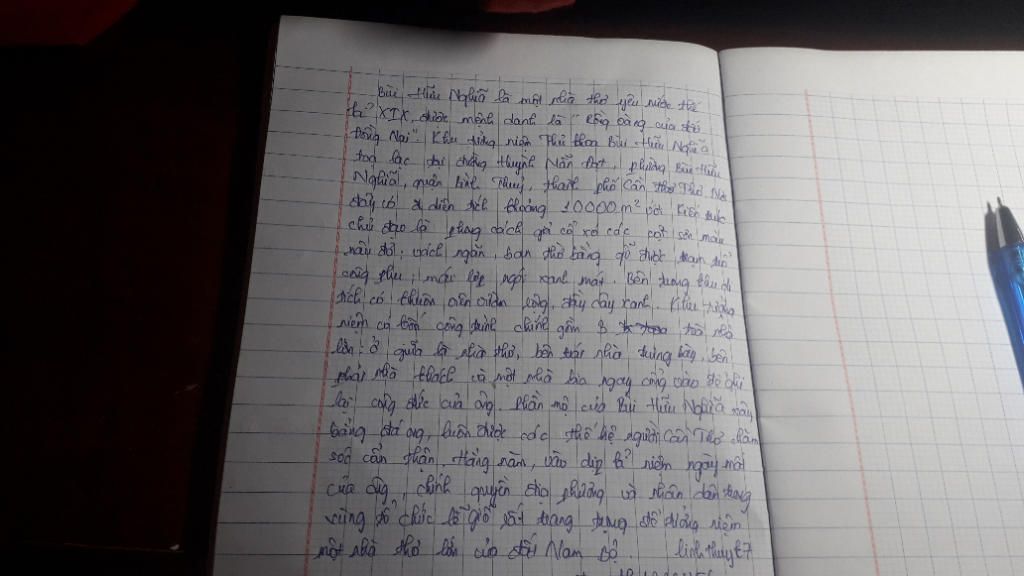 Bùi Hữu Nghĩa là một nhà thơ yêu nước thế
kỉ XIX, được mệnh danh là "Rồng vàng của đất
Đồng Nai". Khu tưởng niệm Thủ khoa Bùi Hữu Nghĩa
toạ lạc tại đường Huỳnh Mẫn Đạt, phường Bùi Hữu
Nghĩa, quận Bình Thuỷ, thành phố Cần Thơ. Nơi
đây có diện tích khoảng 10000m² với kiến trúc
chủ đạo là phong cách giả cổ xưa các cột sơn màu
nâu đỏ, vách ngăn, ban thờ bằng gỗ được chạm trổ
công phu, mái lợp ngói xanh mát. Bên trong khu di
tích có khuôn viên rộng, đầy cây xanh. Khu tưởng
niệm có bốn công trình chính gồm 3 toà nhà
lớn: ở giữa là nhà thờ, bên trái nhà trưng bày, bên
phải nhà khách và một nhà bia ngay cổng vào để ghi
lại công đức của ông. Phần mộ của Bùi Hữu Nghĩa xây
bằng đá ong, luôn được các thế hệ người Cần Thơ chăm
sóc cẩn thận. Hằng năm, vào dịp kỉ niệm ngày mất
của ông, chính quyền địa phương và nhân dân trong
vùng tổ chức lễ giỗ rất trang trọng để tưởng niệm
một nhà thơ lớn của đất Nam Bộ. linhthuyt7